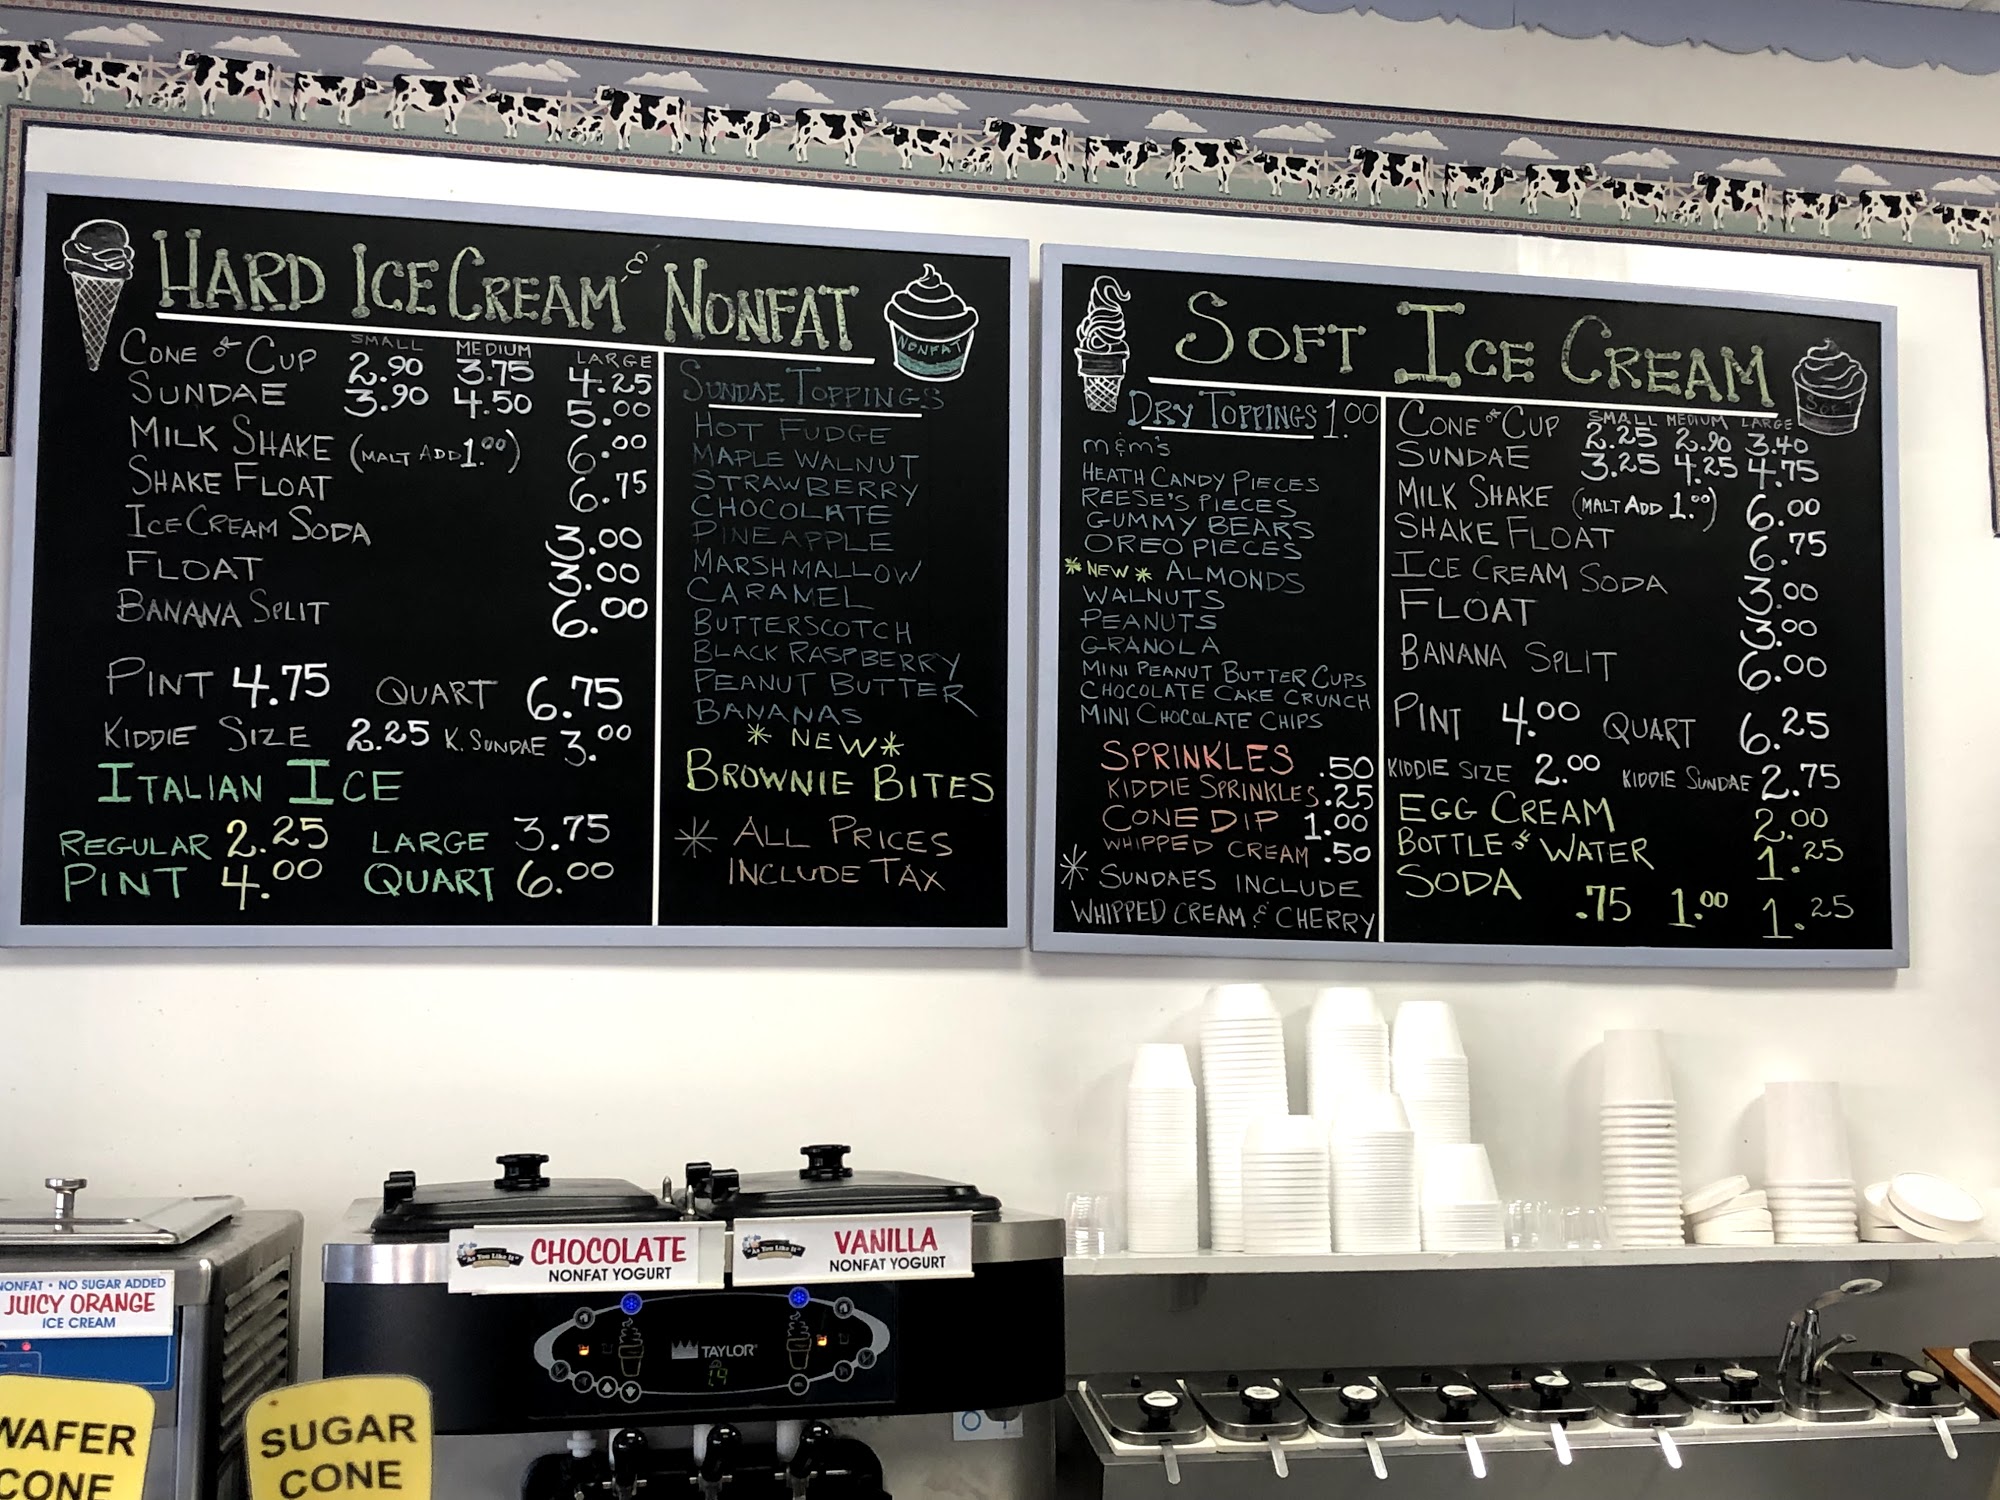 HARD ICE CREAM & NONFAT
NONFAT
SMALL MEDIUM LARGE
CONE or CUP 2.90 3.75 4.25
SUNDAE 3.90 4.50 5.00
MILK SHAKE (MALT ADD 1.00) 6.00
SHAKE FLOAT 6.75
ICE CREAM SODA 3.00
FLOAT 3.00
BANANA SPLIT 6.00
PINT 4.75 QUART 6.75
KIDDIE SIZE 2.25 K. SUNDAE 3.00
ITALIAN ICE
REGULAR 2.25 LARGE 3.75
PINT 4.00 QUART 6.00
SUNDAE TOPPINGS
HOT FUDGE
MAPLE WALNUT
STRAWBERRY
CHOCOLATE
PINEAPPLE
MARSHMALLOW
CARAMEL
BUTTERSCOTCH
BLACK RASPBERRY
PEANUT BUTTER
BANANAS
* NEW *
BROWNIE BITES
* ALL PRICES
INCLUDE TAX
SOFT ICE CREAM
SOFT
DRY TOPPINGS 1.00
m&m's
HEATH CANDY PIECES
REESE'S PIECES
GUMMY BEARS
OREO PIECES
* NEW * ALMONDS
WALNUTS
PEANUTS
GRANOLA
MINI PEANUT BUTTER CUPS
CHOCOLATE CAKE CRUNCH
MINI CHOCOLATE CHIPS
SPRINKLES .50
KIDDIE SPRINKLES .25
CONE DIP 1.00
WHIPPED CREAM .50
* SUNDAES INCLUDE
WHIPPED CREAM & CHERRY
SMALL MEDIUM LARGE
CONE or CUP 2.25 2.90 3.40
SUNDAE 3.25 4.25 4.75
MILK SHAKE (MALT ADD 1.00) 6.00
SHAKE FLOAT 6.75
ICE CREAM SODA 3.00
FLOAT 3.00
BANANA SPLIT 6.00
PINT 4.00 QUART 6.25
KIDDIE SIZE 2.00 KIDDIE SUNDAE 2.75
EGG CREAM 2.00
BOTTLE of WATER 1.25
SODA .75 1.00 1.25
NONFAT • NO SUGAR ADDED
JUICY ORANGE
ICE CREAM
WAFER
CONE
SUGAR
CONE
"As You Like It"
CHOCOLATE
NONFAT YOGURT
"As You Like It"
VANILLA
NONFAT YOGURT
TAYLOR